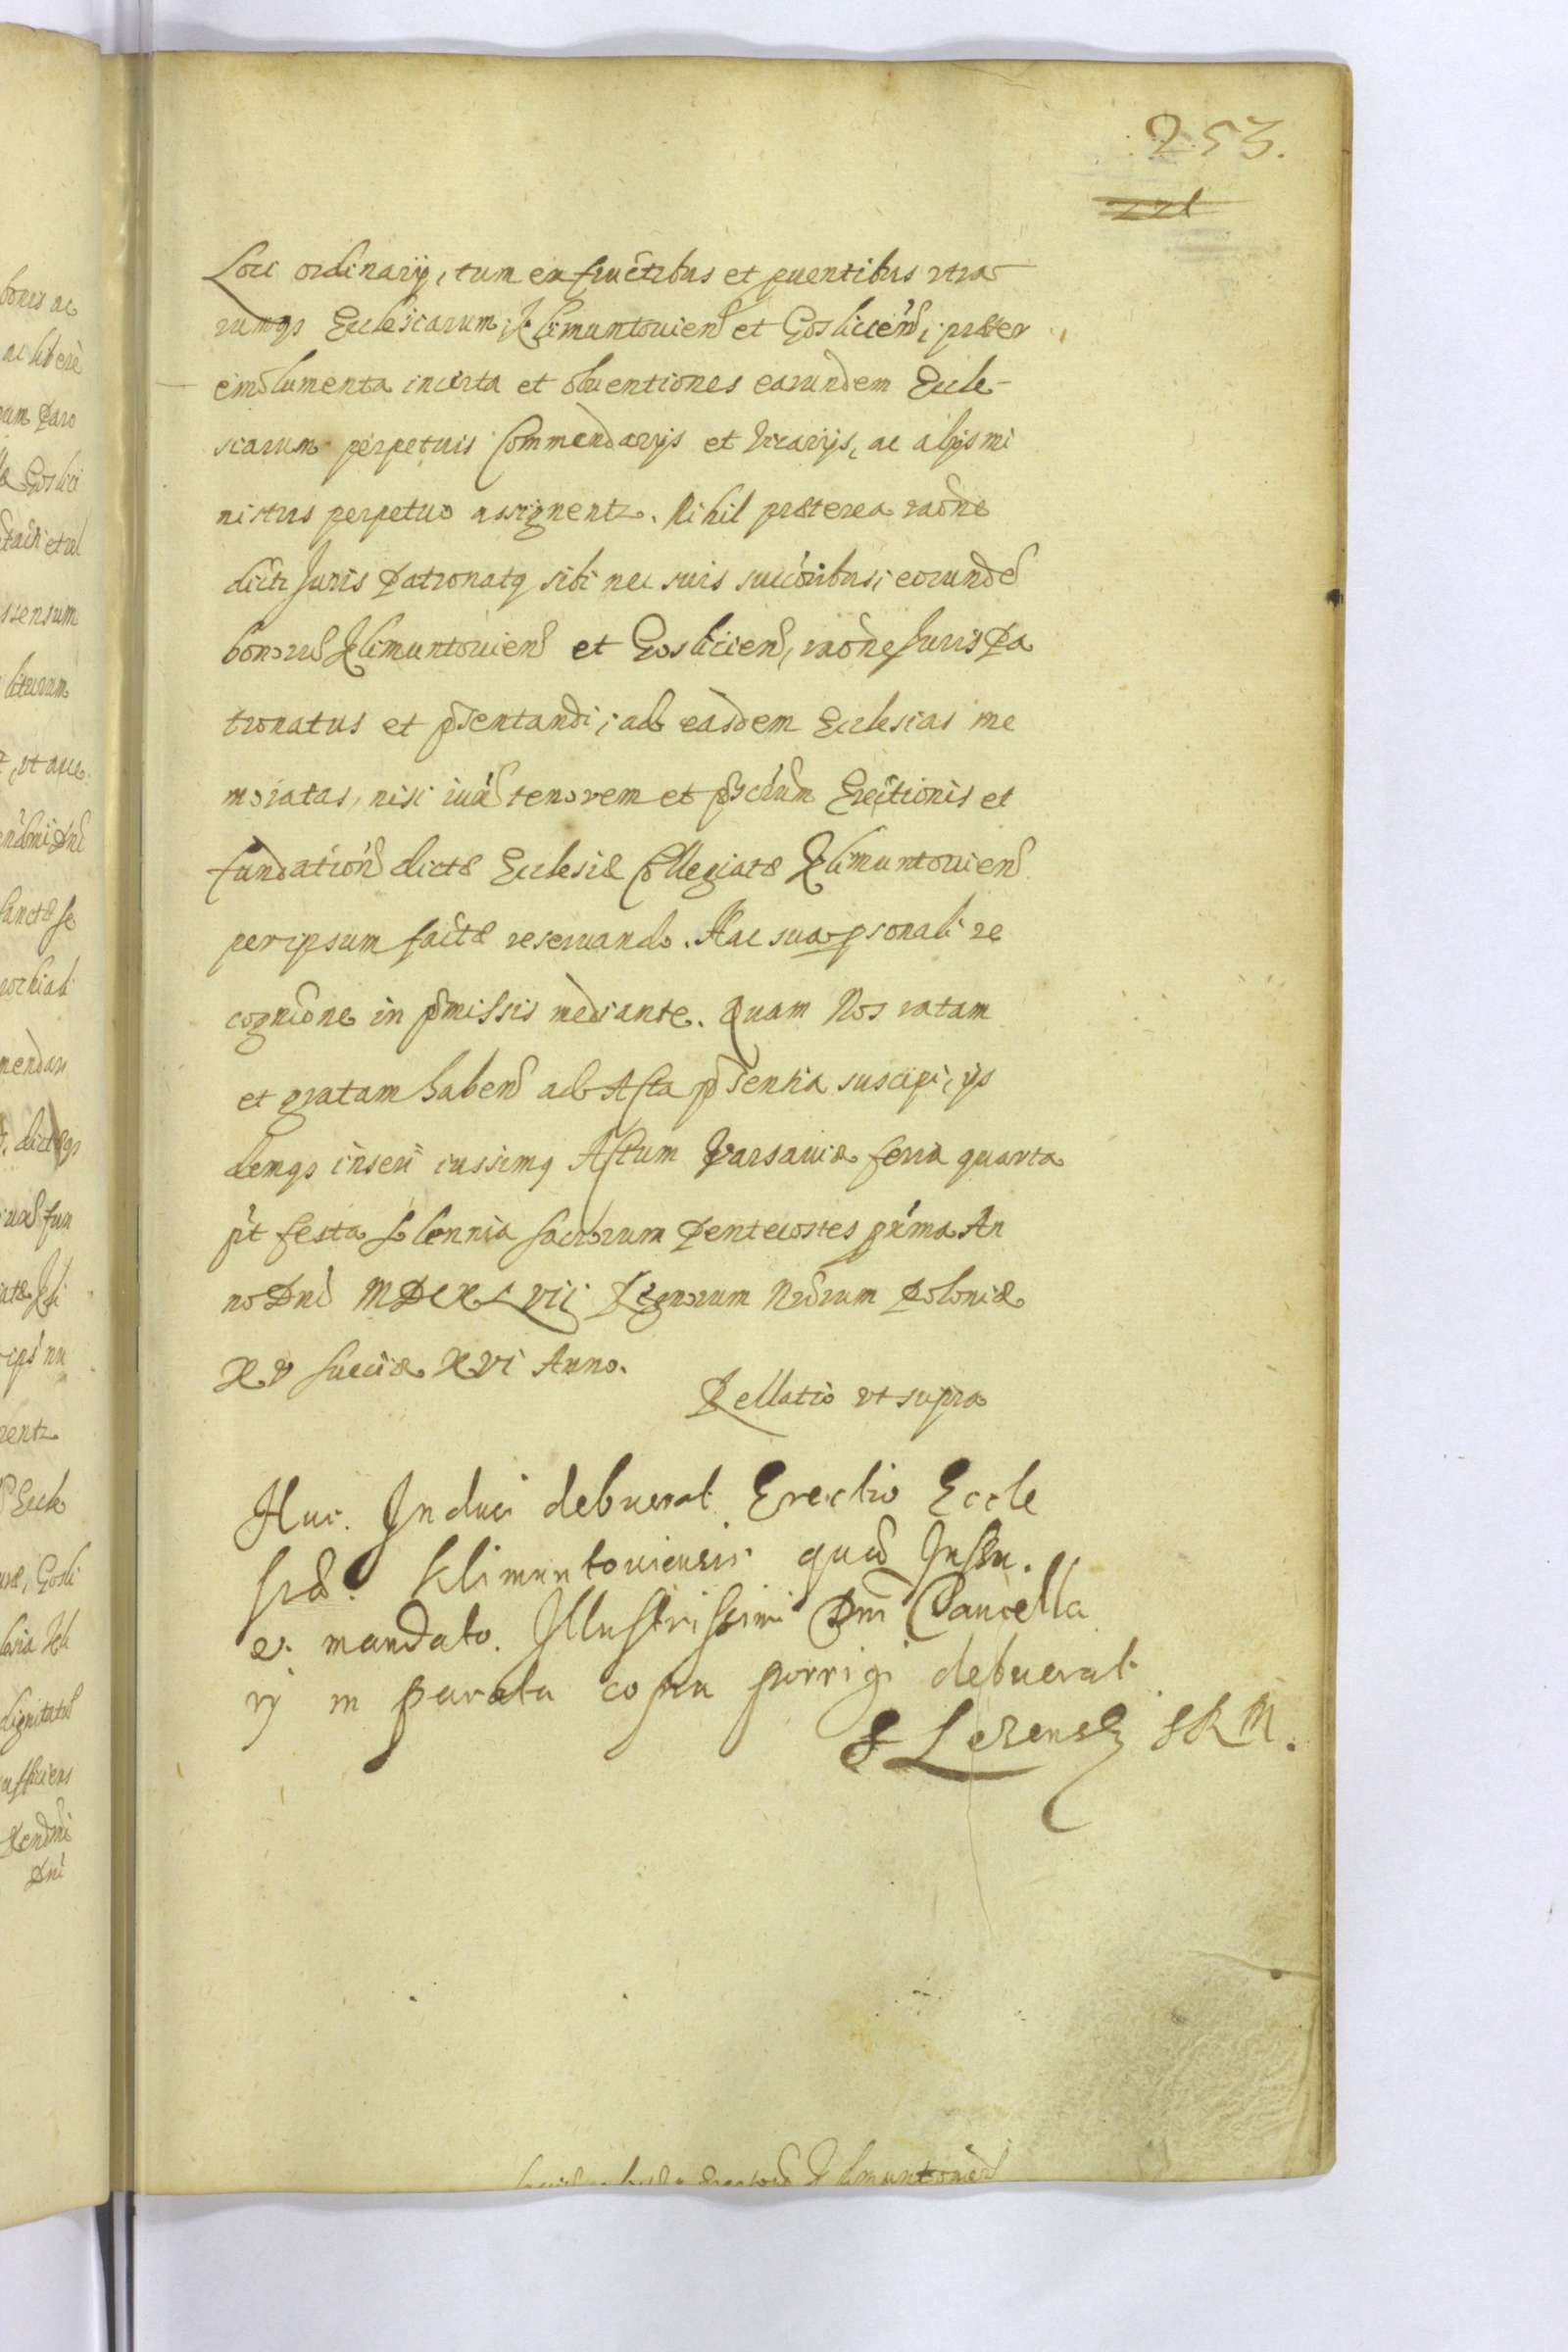 253.
221
Loci ordinarij, tum ex fructibus et puentibus vtra
rumqs Ecclesiarum, Klimuntouien et Gosliciens, præter
emolumenta incerta et obuentiones earundem Eccle-
siarum perpetuis Commendarijs et Vicarijs, ac alijs mi
nistris perpetuo assignentr. Nihil præterea raone
dicti Juris Patronatq sibi nec suis succoribus, eorunde
bonoru Klimuntouien et Gosliciens, raone Juris Pa
tronatus et pntandi, ad easdem Ecclesias me
moratas, nisi iuxa tenorem et pscriptum Erectionis et
fundation dictæ Ecclesiæ Collegiatæ Klimuntouien
per ipsum factæ reseruando. Hac sua psonali re
cognicione in pmissis mediante. Quam Nos ratam
et gratam haben ad Acta psentia suscipi, ijs
demqs inseri iussimq Actum Varsauiæ feria quarta
pt festa Solennia Sacrorum Pentecostes prima An
no Dni MDCXLVII Regnorum Nrorum Poloniæ
XV Sueciæ XVI Anno.
Rellatio vt supra
Huc. Induci debuerat Erectio Eccle
siæ. Klimuntouiensis quæ Jussu.
e. mandato. Illustrissimi Dni Cancella
rij in parata copia porrigi debuerat.
SKM.